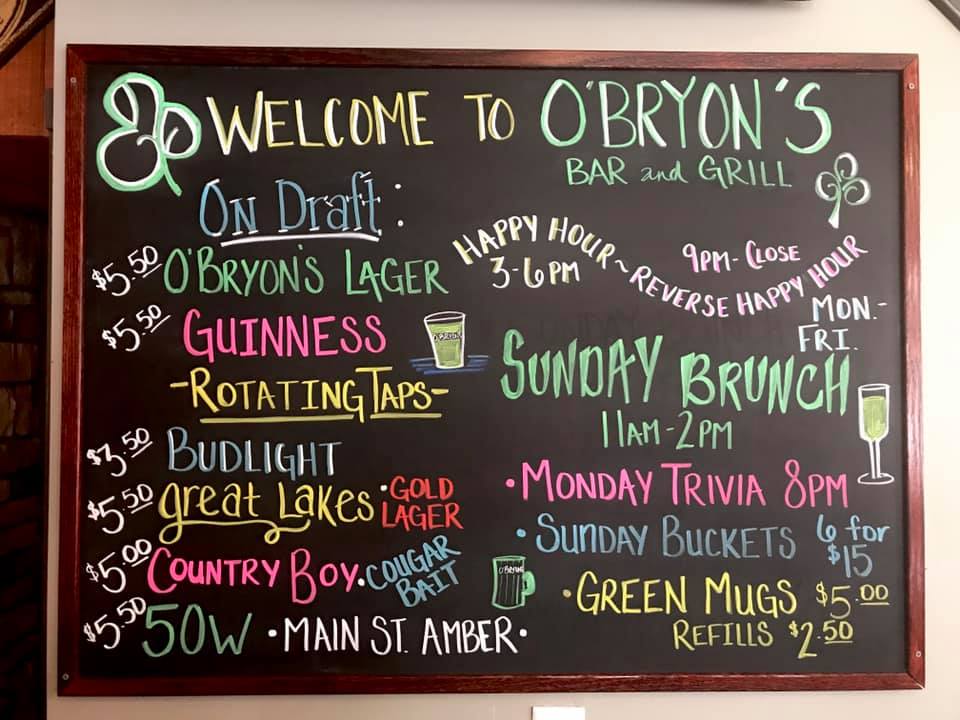 WELCOME TO O'BRYON'S
BAR and GRILL
ON Draft:
$5.50 O'BRYON'S LAGER
$5.50 GUINNESS
O'BRYONS
-ROTATING TAPS-
$3.50 BUDLIGHT
$5.50 great Lakes • GOLD LAGER
$5.00 COUNTRY BOY • COUGAR BAIT
$5.50 50W • MAIN ST. AMBER •
HAPPY HOUR ~ REVERSE HAPPY HOUR
3-6 PM
9PM - CLOSE
MON. -
FRI.
SUNDAY BRUNCH
11AM - 2PM
• MONDAY TRIVIA 8PM
• SUNDAY BUCKETS 6 for $15
O'BRYONS
• GREEN MUGS $5.00
REFILLS $2.50